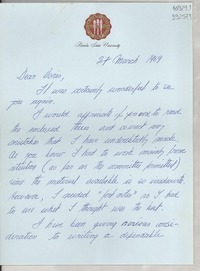 Florida State University
27 March 1969
Dear Doris,
It was certainly wonderful to see
you again.
I would appreciate if you were to read
the enclosed thesis and correct any
mistakes that I have undoubtedly made.
As you know I had to work mainly from
intuition (as far as the committee permitted)
since the material available is so inadequate,
However, I needed
to use what I thought was the best.
I have been giving serious consi-
deration to writing a dependable